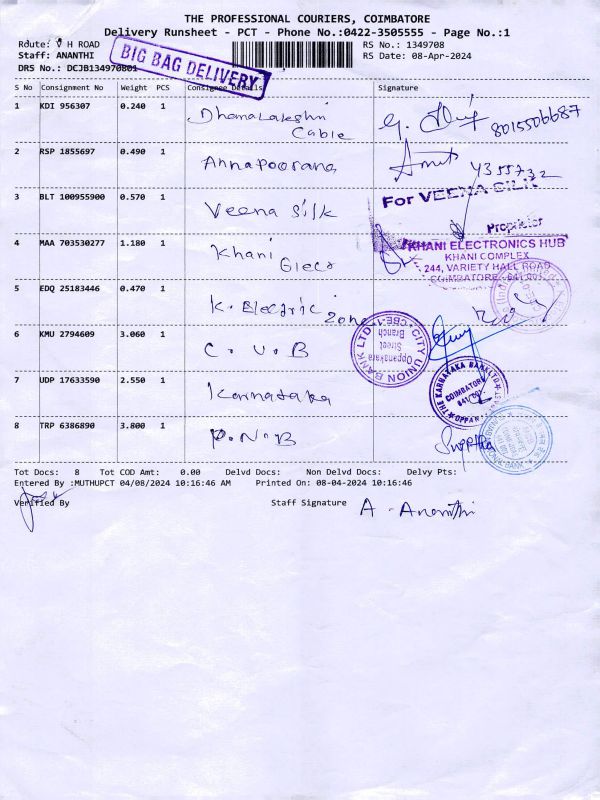 THE PROFESSIONAL COURIERS, COIMBATORE
Delivery Runsheet - PCT - Phone No.:0422-3505555 - Page No.:1
Route: V H ROAD
RS No.: 1349708
Staff: ANANTHI
RS Date: 08-Apr-2024
DRS No.: DCJB134970801
BIG BAG DELIVERY
S No Consignment No Weight PCS Consignee Details Signature
1 KDI 956307 0.240 1 Dhanalakshmi Cable 8015506687
2 RSP 1855697 0.490 1 Annapoorana
3 BLT 100955900 0.570 1 Veena Silk
For VEENA SILK
Proprietor
4 MAA 703530277 1.180 1 Khani Elect
KHANI ELECTRONICS HUB
KHANI COMPLEX
244, VARIETY HALL ROAD
COIMBATORE - 641 001
5 EDQ 25183446 0.470 1 K. Electric Zone
6 KMU 2794609 3.060 1 C.U.B
CITY UNION BANK LTD
CBE-1
Oppanakara
Street
Branch
7 UDP 17633590 2.550 1 Karnataka
THE KARNATAKA BANK LTD
COIMBATORE
641 001
8 TRP 6386890 3.800 1 P.N.B
Tot Docs: 8 Tot COD Amt: 0.00 Delvd Docs: Non Delvd Docs: Delvy Pts:
Entered By :MUTHUPCT 04/08/2024 10:16:46 AM Printed On: 08-04-2024 10:16:46
Verified By
Staff Signature A. Ananthi